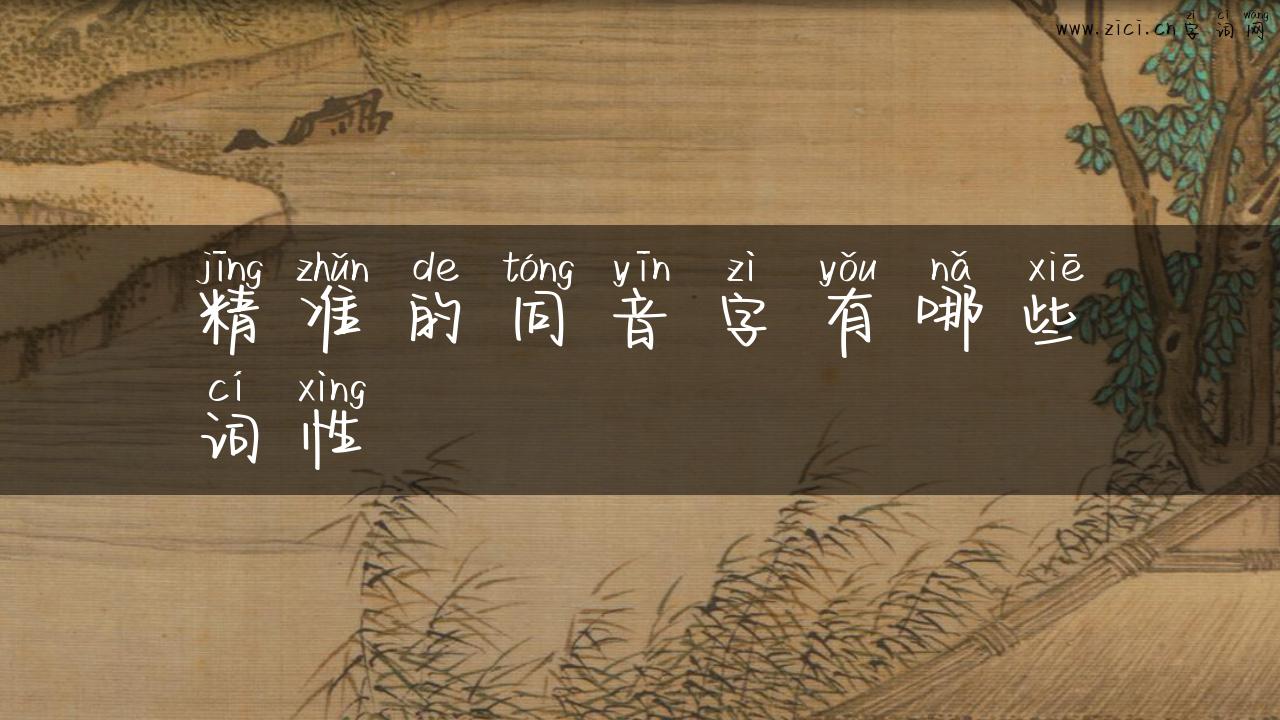 zì cí wǎng
www.zici.cn字词网
jīng zhǔn de tóng yīn zì yǒu nǎ xiē
精准的同音字有哪些
cí xìng
词性